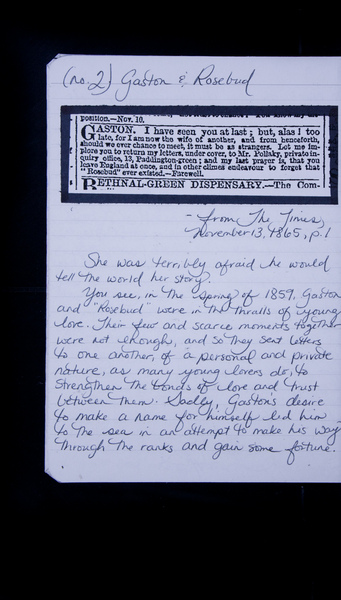 (no. 2) Gaston & Rosebud
position.—Nov. 10.
GASTON. I have seen you at last; but, alas! too
late, for I am now the wife of another, and from henceforth,
should we ever chance to meet, it must be as strangers. Let me im-
plore you to return my letters, under cover, to Mr. Pollaky, private in-
quiry office, 13, Paddington-green; and my last prayer is, that you
leave England at once, and in other climes endeavour to forget that
"Rosebud" ever existed.—Farewell.
BETHNAL-GREEN DISPENSARY.—The Com-
- from The Times,
November 13, 1865, p. 1
She was terribly afraid he would
tell the world her story.
You see, in the spring of 1859, Gaston
and "Rosebud" were in the thralls of young
love. Their few and scarce moments together
were not enough, and so they sent letters
to one another, of a personal and private
nature, as many young lovers do, to
strengthen the bonds of love and trust
between them. Sadly, Gaston's desire
to make a name for himself led him
to the sea in an attempt to make his way
through the ranks and gain some fortune.